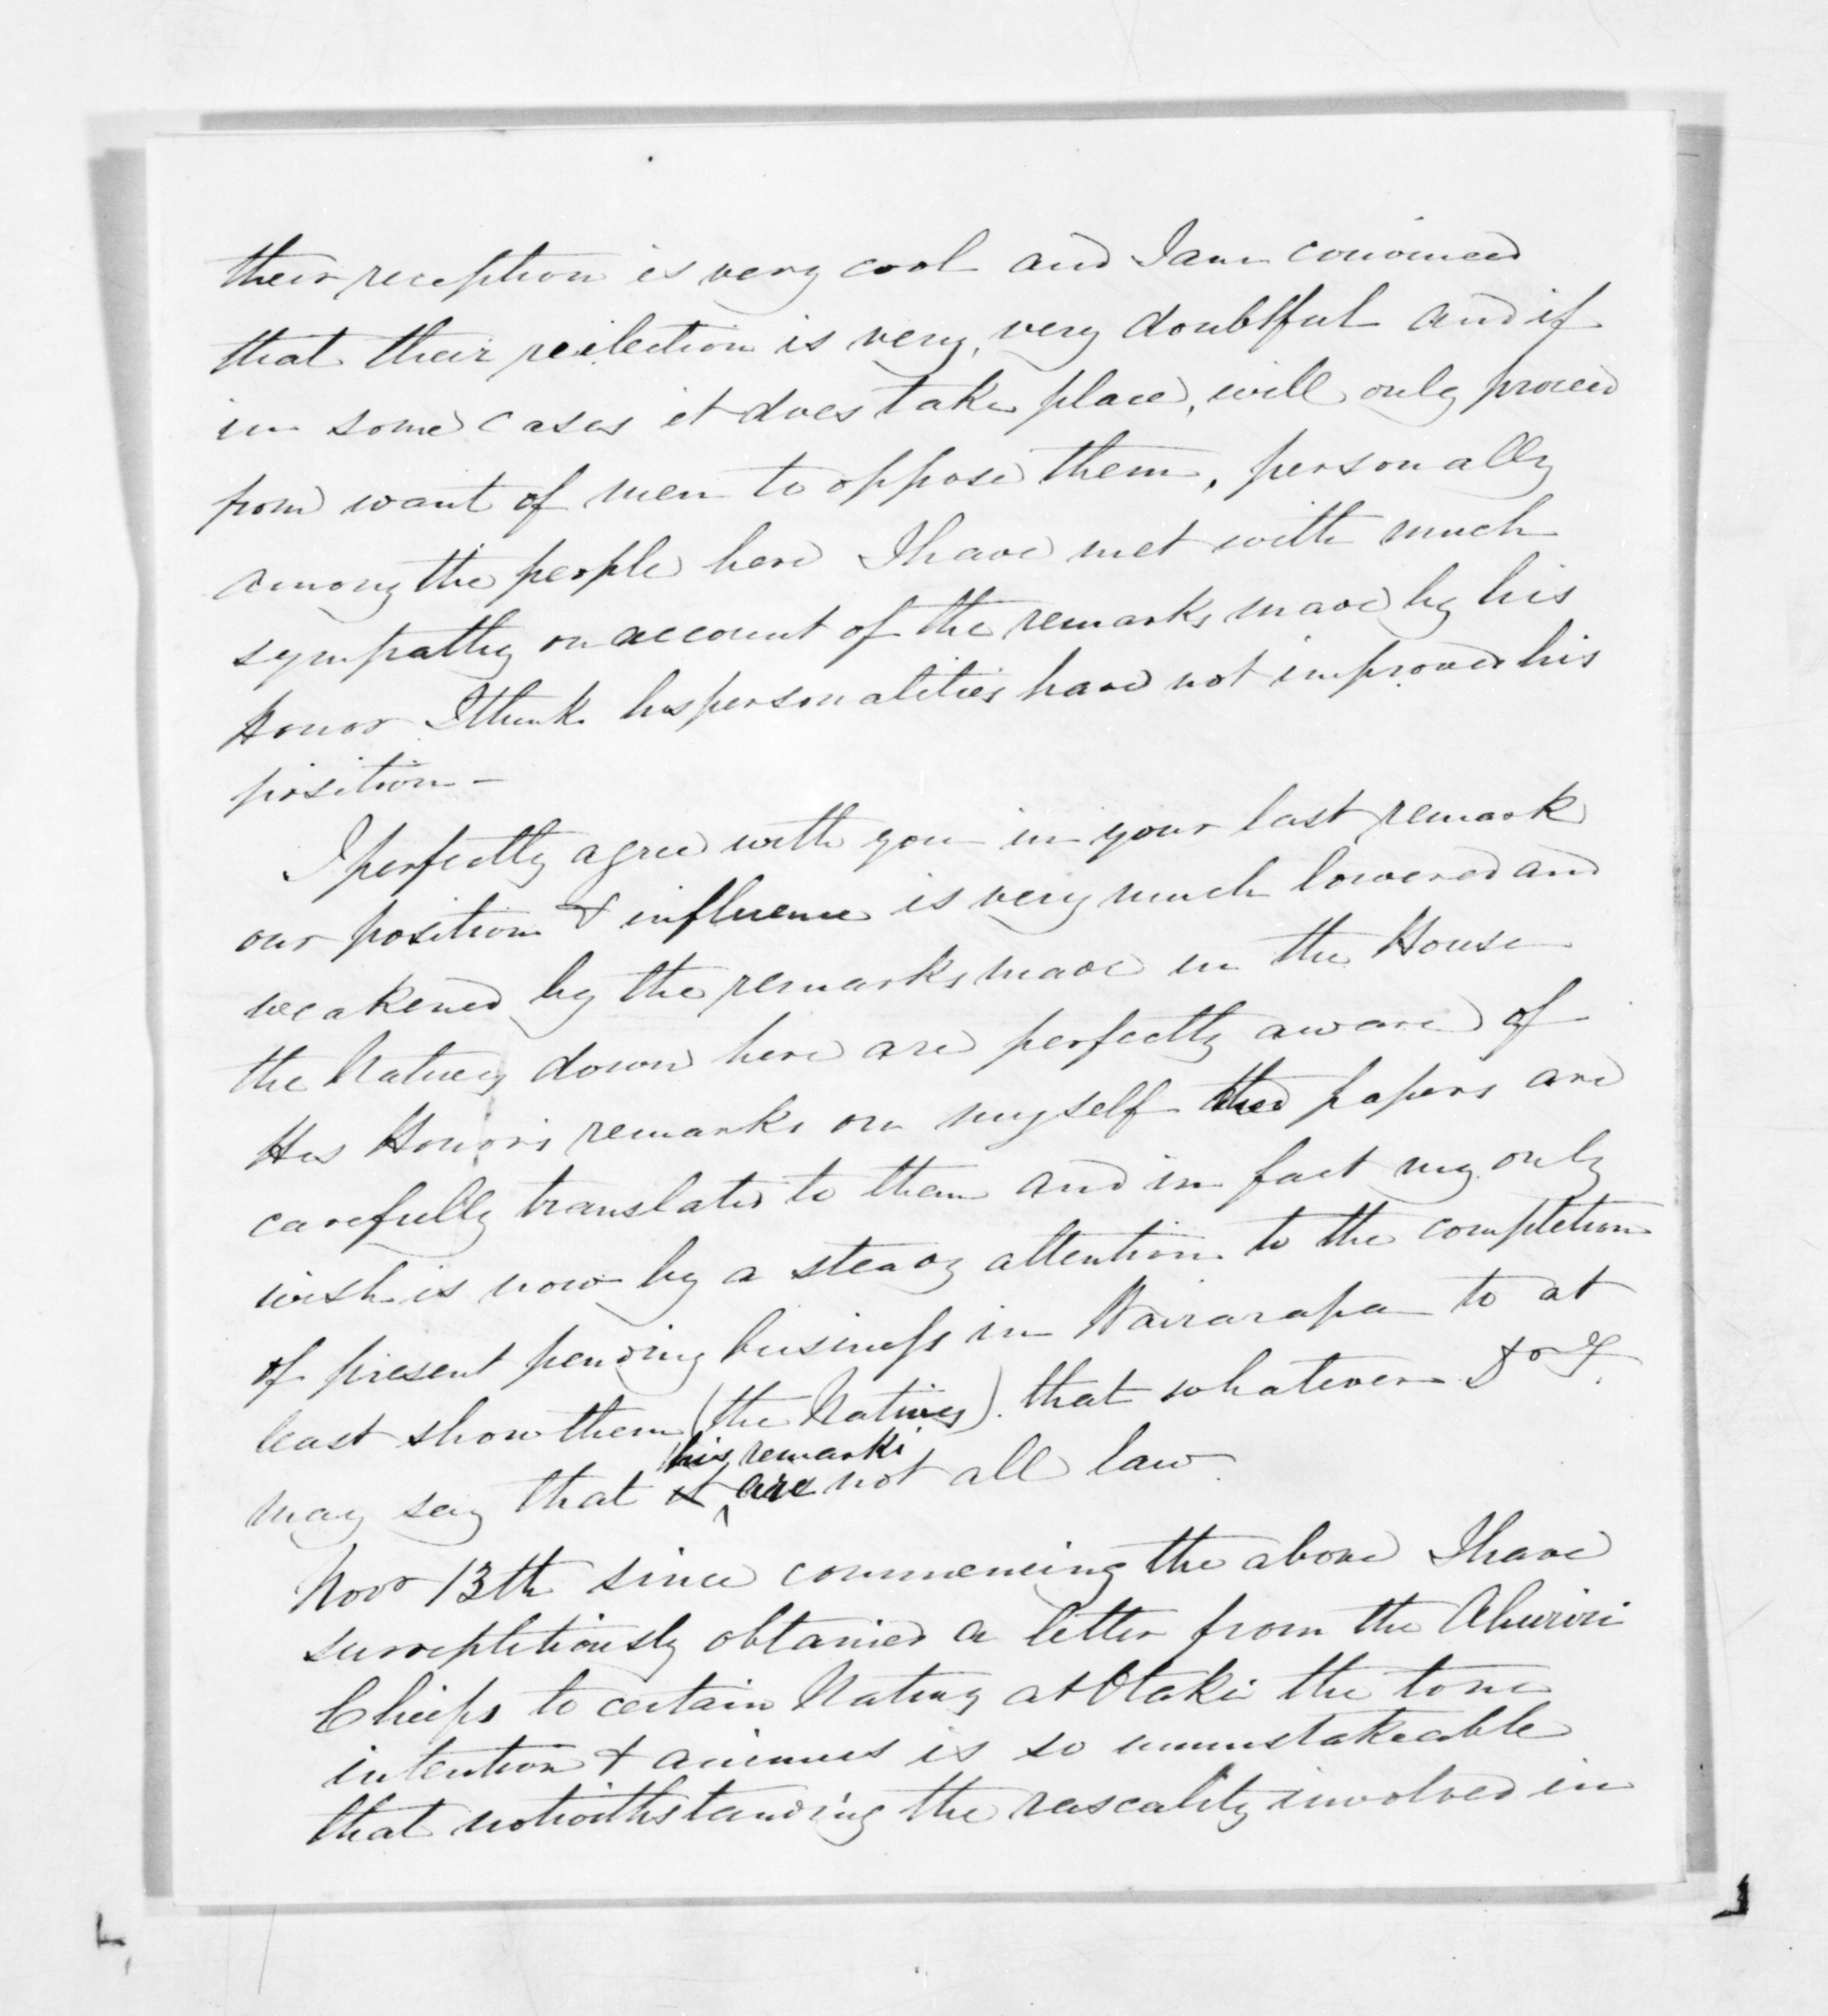 their reception is very cool and I am convinced
that their reelection is very, very doubtful and if
in some cases it does take place, will only proceed
from want of men to oppose them, personally
among the people here I have met with much
sympathy on account of the remarks made by his
Honor I think his personalities have not improved his
position -
I perfectly agree with you in your last remark
our position & influence is very much lowered and
weakened by the remarks made in the House
the Natives down here are perfectly aware of
His Honor's remarks on myself the papers are
carefully translated to them and in fact my only
wish is now by a steady attention to the completion
of present pending business in Wairarapa to at
least show them (the Natives) that whatever
his remarks
may say that it are not all law.
Novr 13th since commencing the above I have
surreptitiously obtained a letter from the Ahuriri
Chiefs to certain Natives at Otaki the tone
intention & animus is so unmistakeable
that notwithstanding the rascality involved in